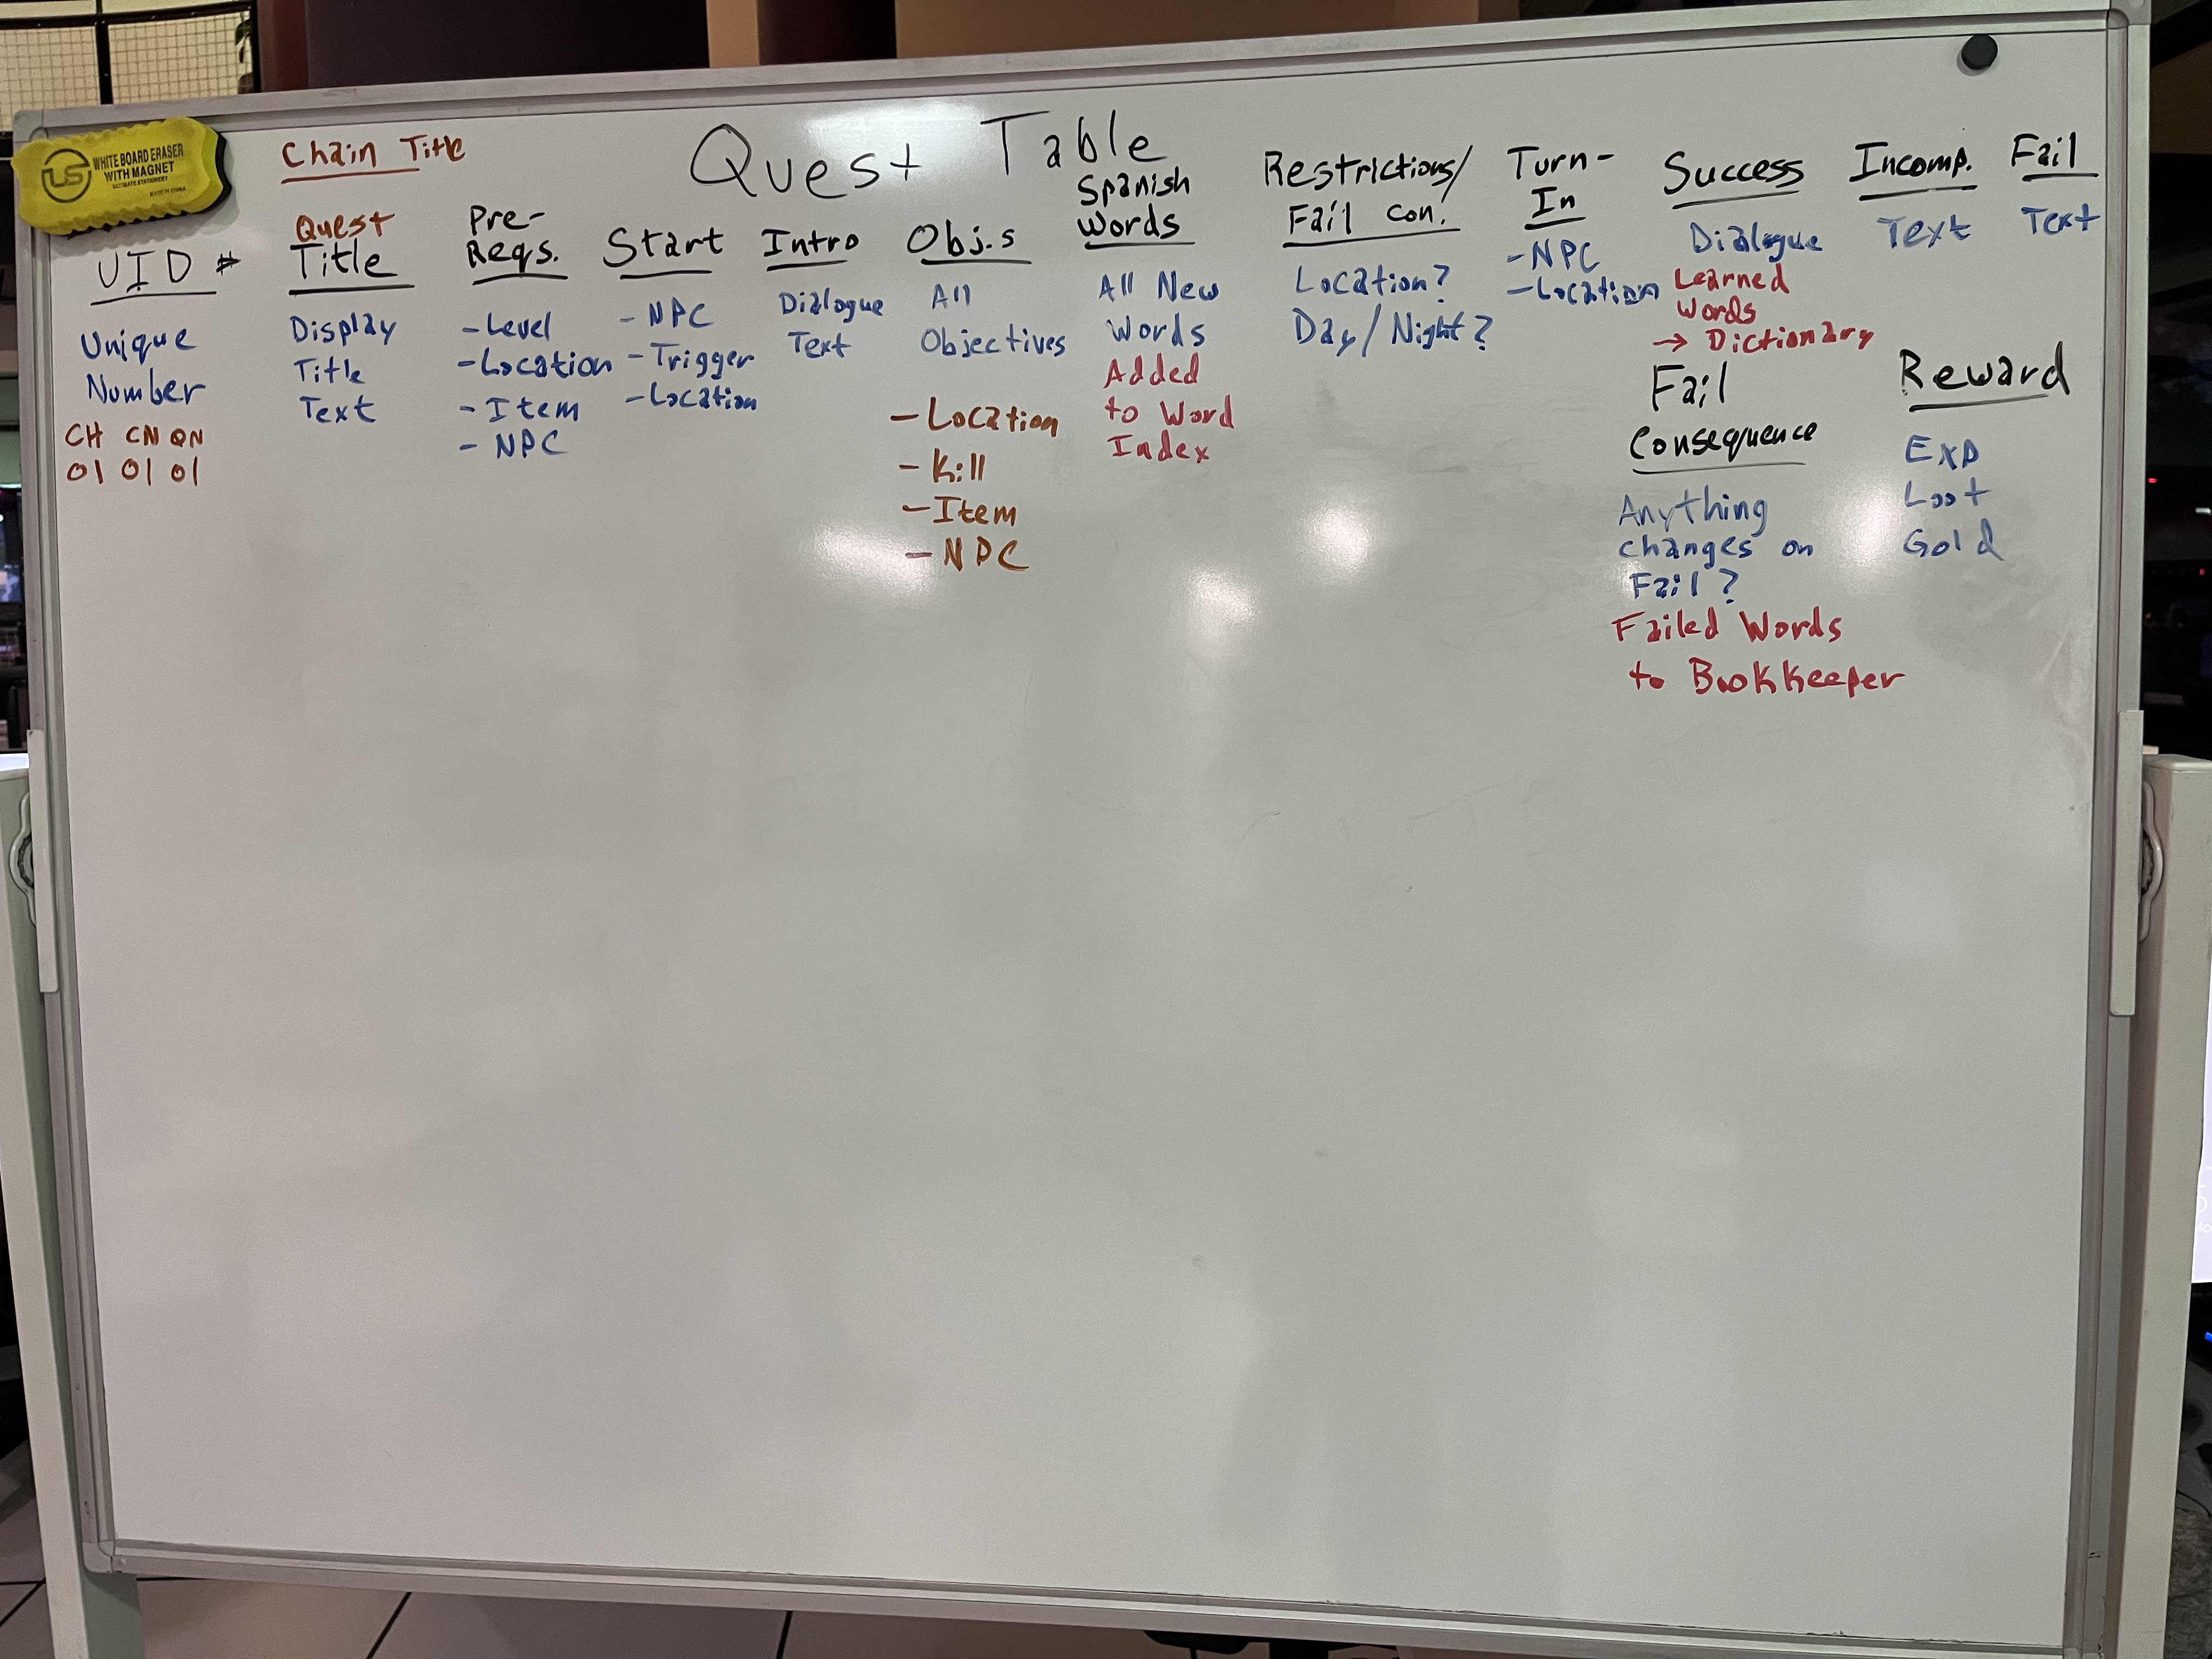 WHITE BOARD ERASER
WITH MAGNET
ULTIMATE STATIONERY
MADE IN CHINA
US
Chain Title
Quest Table
UID #
Unique
Number
CH CN QN
01 01 01
Quest
Title
Display
Title
Text
Pre-
Reqs.
- Level
- Location
- Item
- NPC
Start
- NPC
- Trigger
- Location
Intro
Dialogue
Text
Obj.s
All
Objectives
- Location
- Kill
- Item
- NPC
Spanish
Words
All New
Words
Added
to Word
Index
Restrictions/
Fail con.
Location?
Day/Night?
Turn-
In
- NPC
- Location
Success
Dialogue
Learned
Words
→ Dictionary
Incomp.
Text
Fail
Text
Fail
Consequence
Anything
changes on
Fail?
Failed Words
to Bookkeeper
Reward
Exp
Loot
Gold